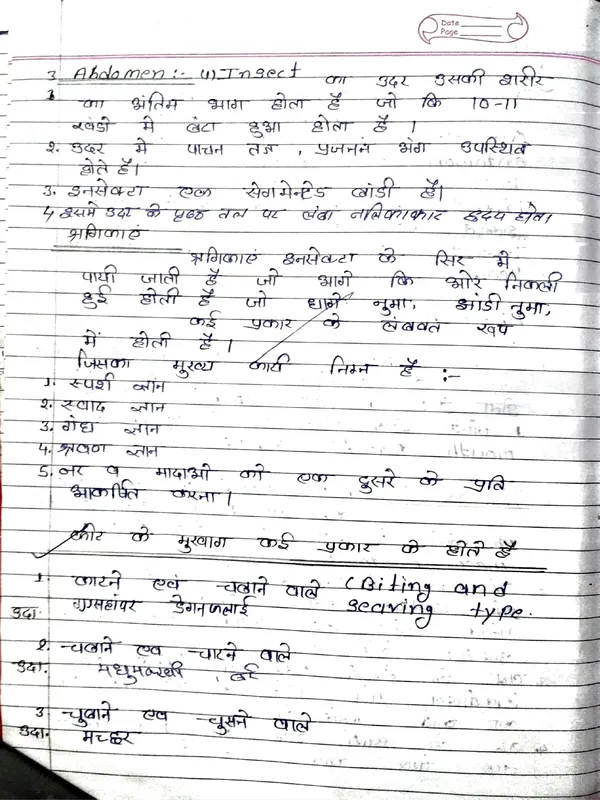 Date
Page
3 Abdomen:- (1) Insect का उदर उसकी शरीर
का अंतिम भाग होता है जो कि 10-11
खंडो मे बंटा हुआ होता है ।
2. उदर मे पाचन तंत्र , प्रजनन अंग उपस्थित
होते है।
3. इनसेक्टा एक सेगमेन्टेड बॉडी है।
4, इसमे उदर के पृष्ठ तल पर लंबा नालिकाकार हृदय होता
श्रृगिकाएं
श्रृगिकाएं इनसेक्टा के सिर मे
पायी जाती है जो आगे कि ओर निकली
हुई होती है जो धागे नुमा, झाडी नुमा,
कई प्रकार के लंबवत रूप
में होती है ।
जिसका मुख्य कार्य निम्न है :-
1. स्पर्श ज्ञान
2. स्वाद ज्ञान
3. गंध ज्ञान
4. श्रवण ज्ञान
5. नर व मादाओ को एक दुसरे के प्रति
आकर्षित करना ।
कीट के मुखाग कई प्रकार के होते है
1. काटने एवं चबाने वाले (Biting and
उदा. ग्रासहॉपर ड्रेगनफलाई seaving type.
2. चबाने एव चाटने वाले
उदा. मधुमक्खी , बर्र
3 चुबाने एव चुसने वाले
उदा. मच्छर